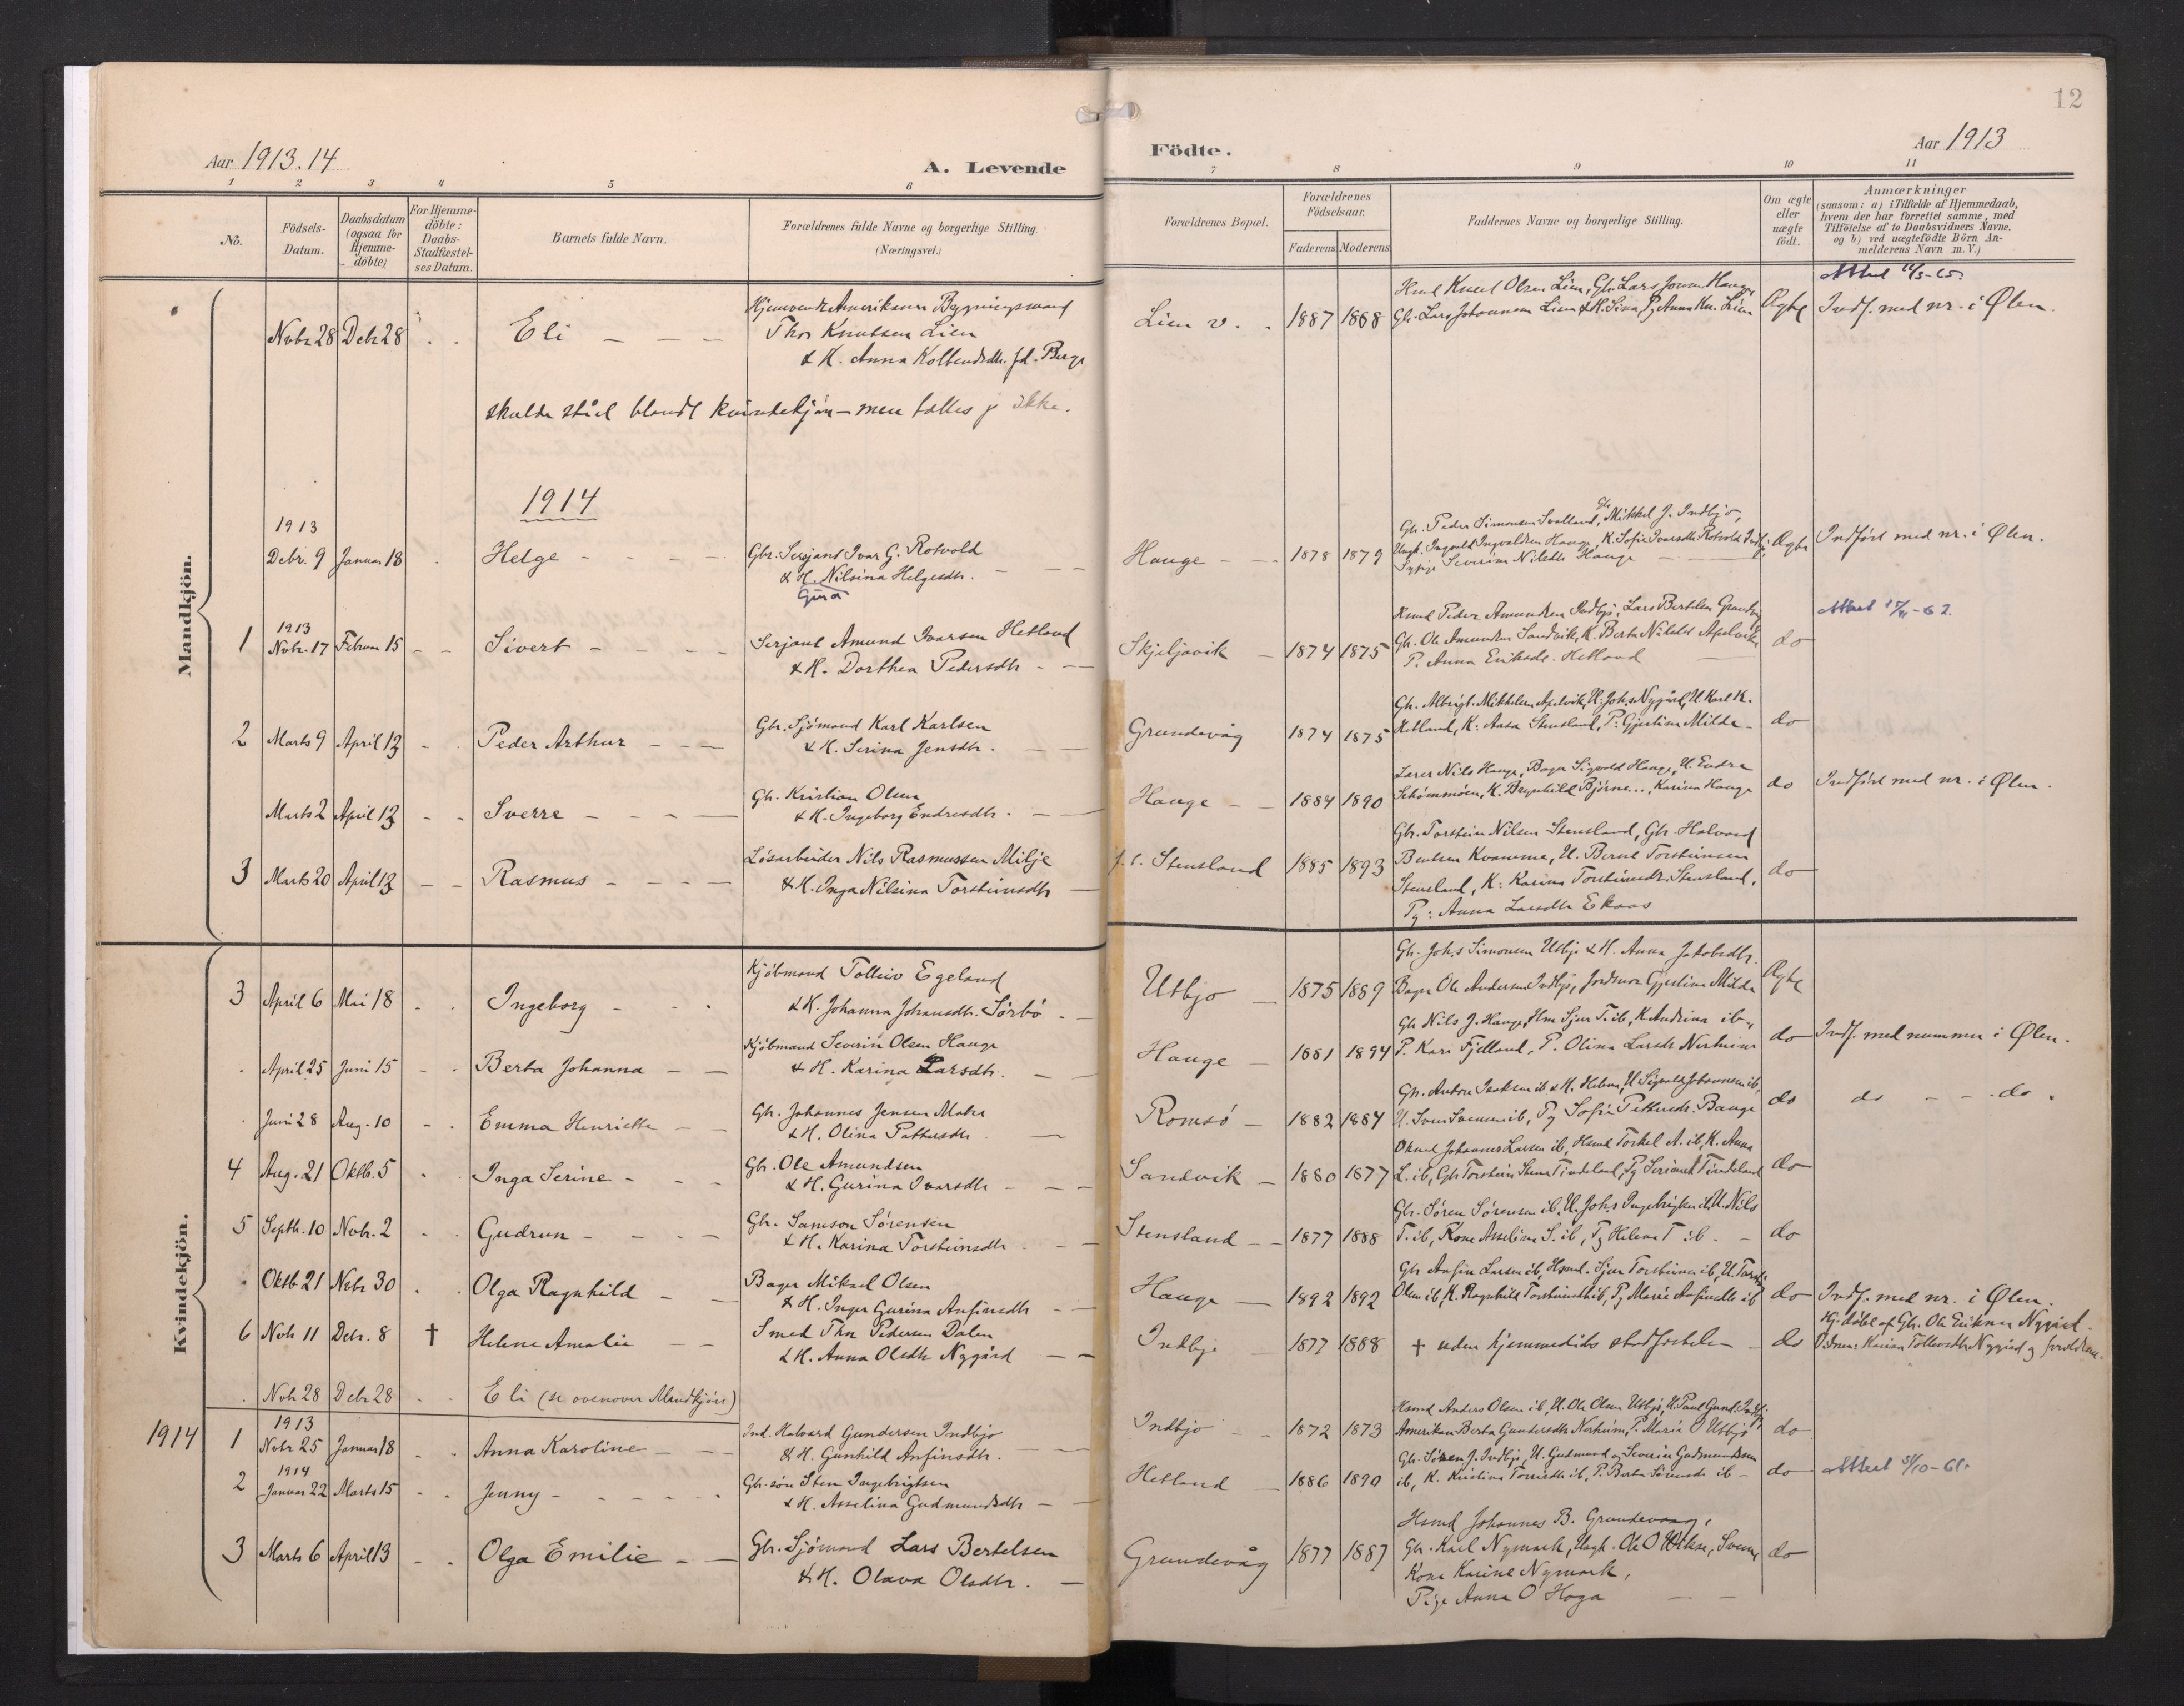 12
Aar 1913.14
A. Levende
Födte.
Aar 1913
1 2 3 4 5 6 7 8 9 10 11
No.
Födsels-Datum.
Daabsdatum (ogsaa for Hjemme-döbte)
For Hjemme-döbte: Daabs-Stadfæstel-ses Datum.
Barnets fulde Navn.
Forældrenes fulde Navne og borgerlige Stilling. (Næringsvei.)
Forældrenes Bopæl.
Forældrenes Födselsaar.
Faderens Moderens
Faddernes Navne og borgerlige Stilling.
Om ægte eller uægte født.
Anmærkninger
(saasom: a) i Tilfælde af Hjemmedaab,
hvem der har forrettet samme, med
Tilföielse af to Daabsvidners Navne.
og b) ved uægtefödte Börn An-
melderens Navn m.V.)
Mandkjön.
Hjemvendt Amerikaner Bygningsmand
Novbr 28 Decbr 28 Eli Thor Knutsen Lien
& H. Anna Kolbensdtr. fd. Berge
Lien v. 1887 1868
Hmd Knut Olsen Lien, Gbr. Lars Jonsen Hauge
Gbr. Lars Johannesen Lien & H. Sina, Pg Anna Kn. Lien
Ægte Indf. med nr. i Ølen.
skulde stået blandt kvindekjøn – men tælles jo ikke.
1914
1913
Debr. 9 Januar 18 Helge Gbr. Serjant Ivar G. Rotvold
& H. Nilsina Helgesdtr.
Gina
Hauge 1878 1879
Gbr. Peder Simonsen Svalland, Gbr Mikkel J. Indbjo,
Ungk. Ingvald Ingvaldsen Hauge, K. Sofie Ivarsdtr Rotvold Indbjo
Severine Nilsdtr Hauge
Ægte Indført med nr. i Ølen.
1913
1 Nobr. 17 Februar 15 Sivert Serjant Amund Ivarsen Hetland
& H. Dorthea Pedersdtr
Skjeljavik 1874 1875
Hsmd Peder Amundsen Indbjo, Lars Bertelsen Grandevåg
Gbr. Ole Amundsen Sandvik, K. Berta Nilsdtr Apelvik
P. Anna Eriksdtr. Hetland
do Attest 62
2 Marts 9 April 13 Peder Arthur Gbr. Sjömand Karl Karlsen
& H. Serina Jensdtr.
Grundevåg 1874 1875
Gbr. Albrigt Mikkelsen Apelvik, U. Johs Nygård, U. Karl K.
Hetland, K: Aasa Stensland, P: Gjertine Milde
do
Marts 2 April 13 Sverre Gbr. Kristian Olsen
& H. Ingeborg Endresdtr.
Hauge 1884 1890
Lærer Nils Hauge, Bager Sigvald Hauge, U. Endre
Schømmøen, K. Bergnhild Bjørne..., Karina Hauge
do Indført med nr. i Ølen.
3 Marts 20 April 13 Rasmus Løsarbeider Nils Rasmussen Milje
& H. Inga Nilsina Torsteinsdtr
Stensland 1885 1893
Gbr. Torstein Nilsen Stensland, Gbr. Halvard
Bentsen Kvamme, U. Bernt Torsteinsen
Stensland, K: Karina Torsteinsdtr. Stensland,
Pg: Anna Larsdtr Ekaas
do
Kvindekjön.
3 April 6 Mai 18 Ingeborg Kjøbmand Tolleiv Egeland
& H. Johanna Johansdtr. Sørbø
Utbjo 1875 1889
Gbr. Johs Simonsen Utbjo & H. Anna Jakobsdtr.
Bager Ole Andersen Indbjo, Jordmor Gjertina Milde
Ægte
April 25 Juni 15 Berta Johanna Kjøbmand Severin Olsen Hauge
& H. Karina Larsdtr.
Hauge 1881 1894
Gbr Nils J. Hauge, Hsm Sjur T. ib, K. Andrina ib.,
P. Kari Fjelland, P. Olina Larsdtr Nerheim
do Indf. med nummer i Ølen.
Juni 28 Aug. 10 Emma Henriette Gbr. Johannes Jensen Matre
& H. Olina Pettersdtr
Romsø 1882 1884
Gbr. Anton Isaksen ib & H. Helene, U. Sigvald Johannesen ib,
U. Sven Svensen ib, Pg Sofie Pettersdtr. Bauge
do do do.
4 Aug. 21 Oktb. 5 Inga Serine Gbr. Ole Amundsen
& H. Gurina Ivarsdtr
Sandvik 1880 1877
Johannes Larsen ib, Hsmd Torkel A. ib, K. Anna
L. ib, Gbr Torstein Stens Tindeland, Pg Serianna Tindeland
do
5 Septb. 10 Novbr. 2 Gudrun Gbr. Samson Sørensen
& H. Karina Torsteinsdtr
Stensland 1877 1888
Gbr. Søren Sørensen ib, U. Johs Ingebrigtsen ib, U. Nils
T. ib, Kone Asseline S. ib, Pg Helena T ib.
do
Oktb 21 Nobr 30 Olga Ragnhild Bager Mikael Olsen
& H. Inger Gurina Anfinsdtr
Hauge 1892 1892
Gbr Anfin Larsen ib, Hsmd. Sjur Torsteinsen ib, U. Torstein
Olsen ib, K. Ragnhild Torsteinsdtr ib, Pg Marie Anfinsdtr ib
do Indf. med nr. i Ølen.
6 Nobr 11 Debr. 8 † Helene Amalie Smed Thor Pedersen Dalen
& H. Anna Olsdtr Nygård
Indbjo 1877 1888
† uden hjemmedåbs stadfæstelse
do Hj. døbt af Gbr. Ole Eriksen Nygård.
Vidner: Karina Tollevsdtr Nygård og forældrene.
Nobr 28 Debr 28 Eli (se ovenover Mandkjøn)
1914
1913
1 Nobr 25 Januar 18 Anna Karoline Ind. Halvard Gundersen Indbjo
& H. Gunhild Anfinsdtr.
Indbjo 1872 1873
Hsmd Anders Olsen ib, U. Ole Olsen Utbjo, U. Paul Gund. Indbjo,
Amerikan Berta Gundersdtr Nerheim, P. Maria O Utbjo
do
1914
2 Januar 22 Marts 15 Jenny Gbr. søn Sten Ingebrigtsen
& H. Asselina Gudmundsdtr
Hetland 1886 1890
Gbr. Søren J. Indbjo, U. Gudmund og Severin Gudmundsen
ib, K. Kristine ib, P. Berta ib
do Attest /10-61.
3 Marts 6 April 13 Olga Emilie Gbr. Sjömand Lars Bertelsen
& H. Olava Olsdtr.
Grundevåg 1877 1887
Hsmd Johannes B. Grundevaag,
Gbr. Karl Nymark, Ungk. Ole O
Kone Karine Nymark,
Pige Anna O Haga
do